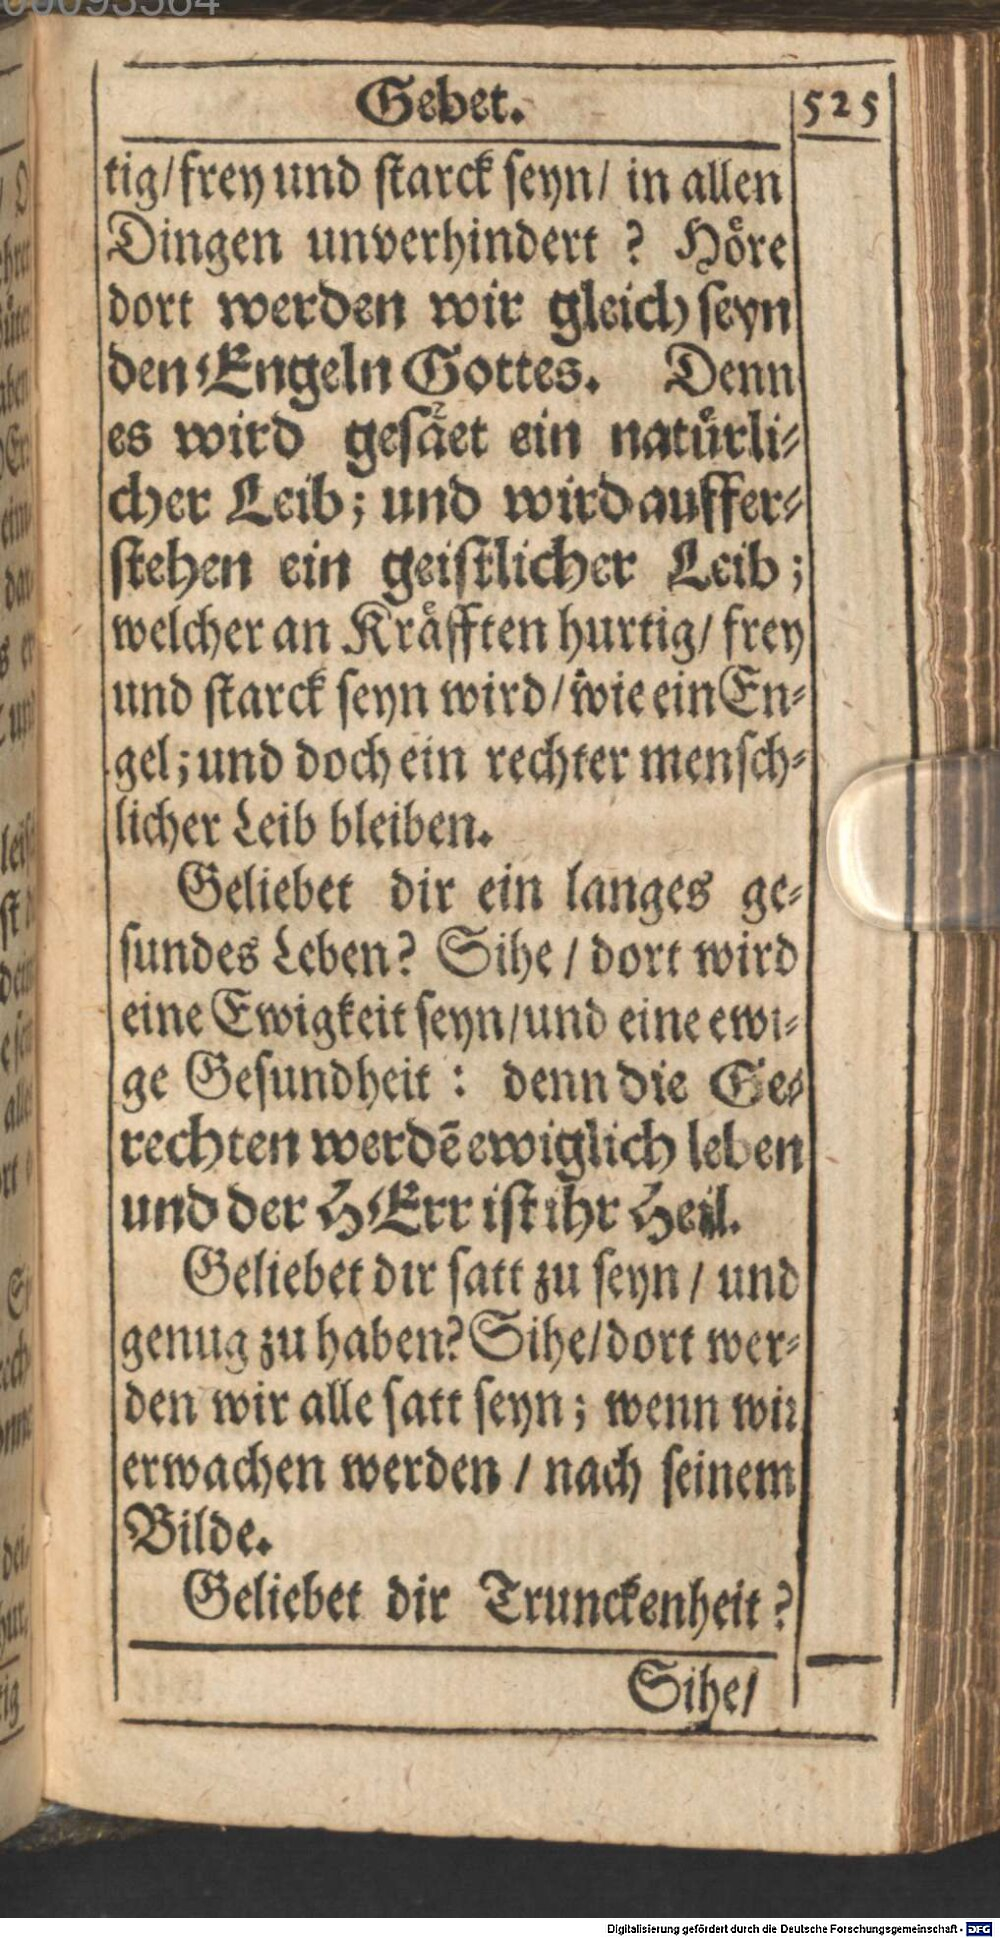 Gebet. 525
tig/ frey und starck seyn/ in allen
Dingen unverhindert ? Hoͤre
dort werden wir gleich seyn
den Engeln Gottes. Denn
es wird gesaͤet ein natuͤrli-
cher Leib; und wird auffer-
stehen ein geistlicher Leib;
welcher an Kraͤfften hurtig/ frey
und starck seyn wird/ wie ein En-
gel; und doch ein rechter mensch-
licher Leib bleiben.
Geliebet dir ein langes ge-
sundes Leben? Sihe / dort wird
eine Ewigkeit seyn/ und eine ewi-
ge Gesundheit : denn die Ge-
rechten werdē ewiglich leben
und der HErr ist ihr Heil.
Geliebet dir satt zu seyn / und
genug zu haben? Sihe/ dort wer-
den wir alle satt seyn; wenn wir
erwachen werden / nach seinem
Bilde.
Geliebet dir Trunckenheit ?
Sihe/
Digitalisierung gefördert durch die Deutsche Forschungsgemeinschaft - DFG